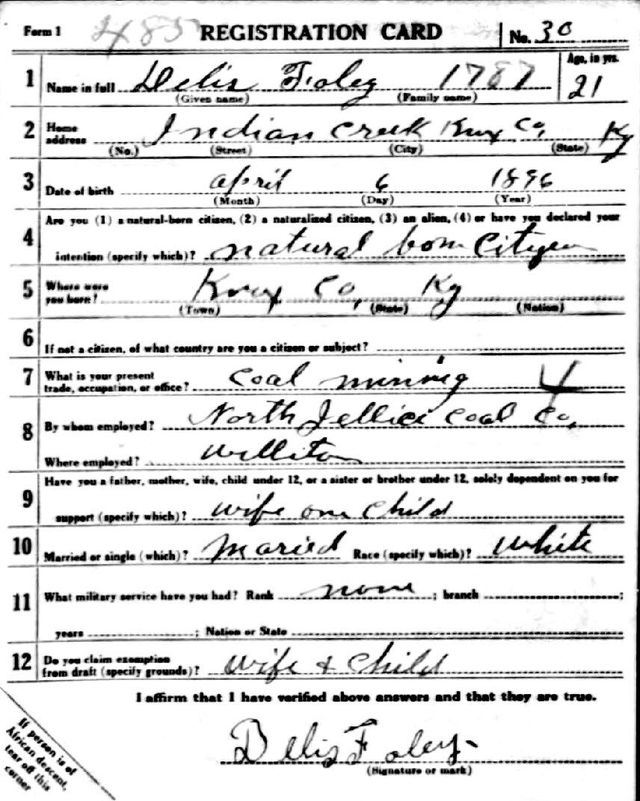 Form 1 485 REGISTRATION CARD No. 30
1 Name in full Delis Foley 1787 Age, in yrs. 21
(Given name) (Family name)
2 Home address Indian Creek Knox Co, Ky
(No.) (Street) (City) (State)
3 Date of birth April 6 1896
(Month) (Day) (Year)
Are you (1) a natural-born citizen, (2) a naturalized citizen, (3) an alien, (4) or have you declared your
4 intention (specify which)? natural born Cityen
5 Where were you born? Knox Co, Ky
(Town) (State) (Nation)
6 If not a citizen, of what country are you a citizen or subject?
7 What is your present trade, occupation, or office? Coal mining 4
8 By whom employed? North Jellico Coal Co,
Where employed? Williton
Have you a father, mother, wife, child under 12, or a sister or brother under 12, solely dependent on you for
9 support (specify which)? wife one Child
10 Married or single (which)? Maried Race (specify which)? White
11 What military service have you had? Rank none ; branch ;
years ; Nation or State
12 Do you claim exemption from draft (specify grounds)? Wife & Child
I affirm that I have verified above answers and that they are true.
Delis Foley
(Signature or mark)
If person is of
African descent,
tear off this
corner